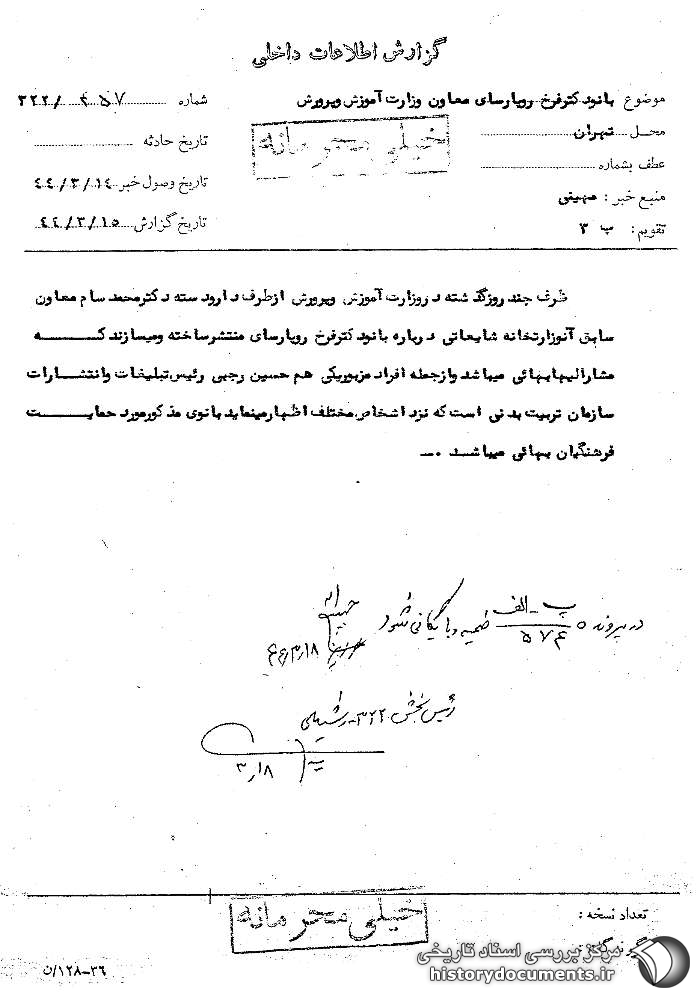 گزارش اطلاعات داخلی
موضوع بانو دکتر فرخ رو پارسای معاون وزارت آموزش و پرورش
شماره ۳۲۲/
محل تهران
خیلی محرمانه
تاریخ حادثه
عطف بشماره
تاریخ وصول خبر ۴۴/۳/۱۴
منبع خبر : مهینی
تاریخ گزارش ۴۴/۳/۱۵
تقویم : ب ۳
ظرف چند روز گذشته در وزارت آموزش و پرورش از طرف دارودسته دکتر محمد سام معاون
سابق آنوزارتخانه شایعاتی درباره بانو دکتر فرخ رو پارسای منتشر ساخته و میسازند که
مشارالیها بهائی میباشد و از جمله افراد مزبور یکی هم حسین رجبی رئیس تبلیغات و انتشارات
سازمان تربیت بدنی است که نزد اشخاص مختلف اظهار مینماید بانوی مذکور مورد حمایت
فرهنگیان بهائی میباشد .
در پرونده پ - الف ضمیمه و بایگانی شود
رئیس بخش ۳۲۲
۳/۱۸
خیلی محرمانه
تعداد نسخه :
۳۶-۱۲۸/ن
مرکز بررسی اسناد تاریخی
historydocuments.ir